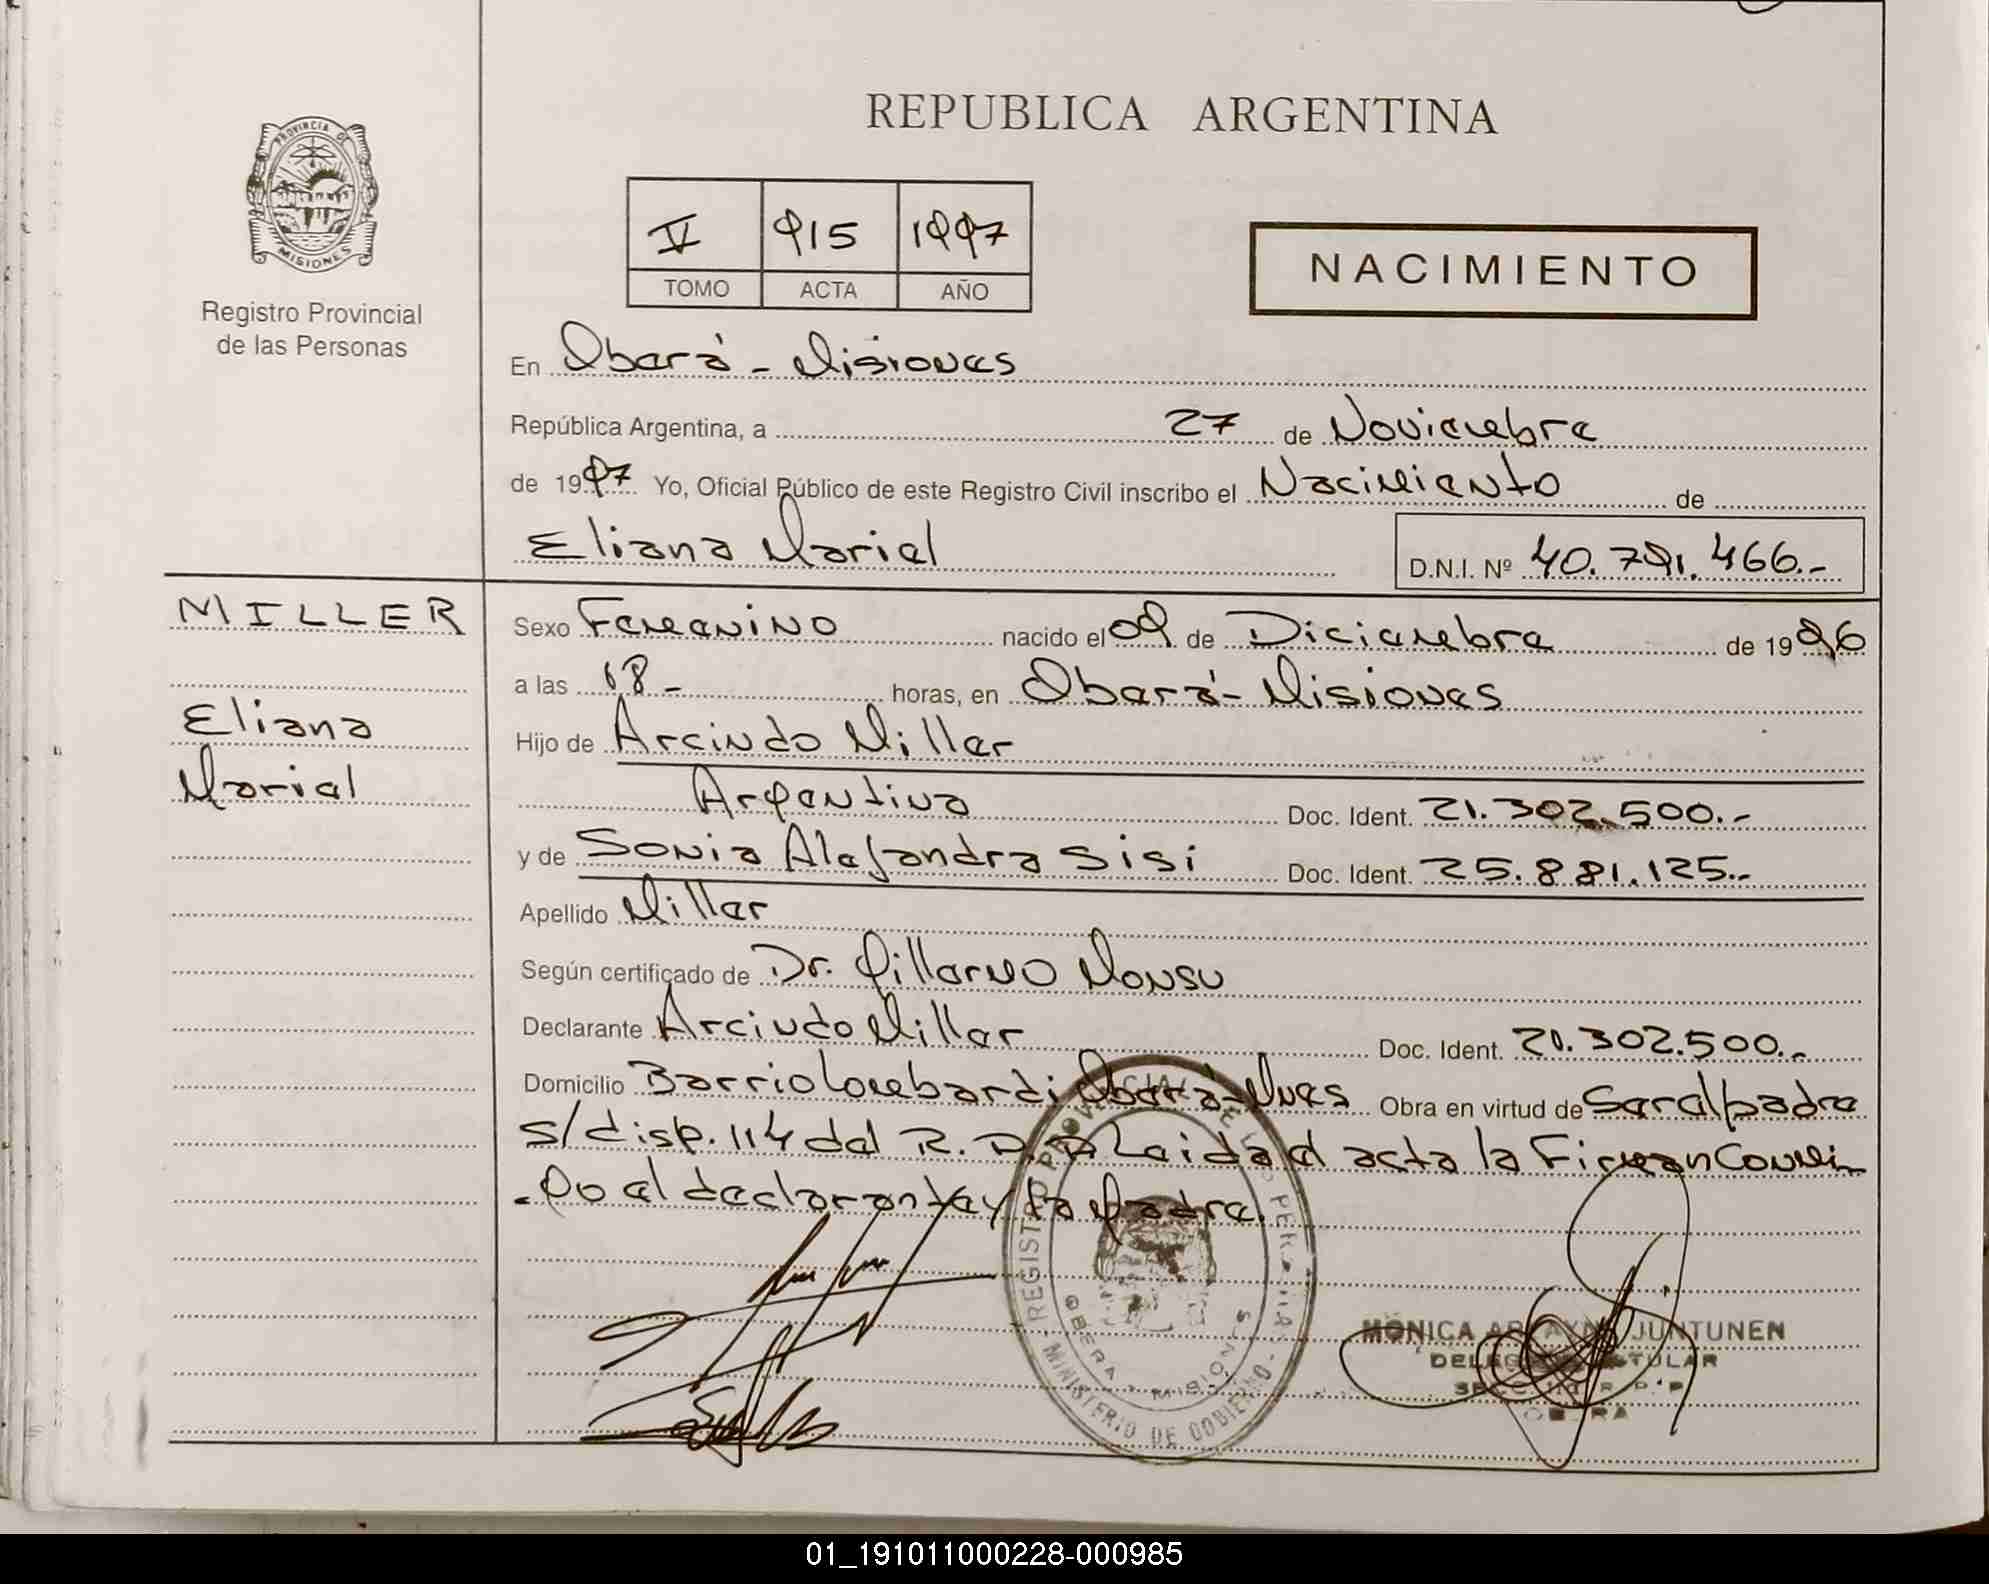 REPUBLICA ARGENTINA
PROVINCIA DE
MISIONES
Registro Provincial
de las Personas
IV 915 1997
TOMO ACTA AÑO
NACIMIENTO
En Oberá - Misiones
República Argentina, a 27 de Noviembre
de 1997 Yo, Oficial Público de este Registro Civil inscribo el Nacimiento de
Eliana Mariel D.N.I. Nº 40.791.466.-
MILLER
Eliana
Mariel
Sexo Femenino nacido el 09 de Diciembre de 1996
a las 18- horas, en Oberá - Misiones
Hijo de Arcindo Miller
Argentina Doc. Ident. 21.302.500.-
y de Sonia Alejandra Sisi Doc. Ident. 25.881.125.-
Apellido Miller
Según certificado de Dr. Guillermo
Declarante Arcindo Miller Doc. Ident. 21.302.500.-
Domicilio Barrio Lombardi Oberá - Mnes Obra en virtud de Ser el padre
s/disp. 114 del R. P. P. Leida el acta la Firman Conmi
-go el declarante y la Madre.
REGISTRO PROVINCIAL DE LAS PERSONAS
MINISTERIO DE GOBIERNO
OBERA - MISIONES
MONICA JUNTUNEN
TITULAR
OBERA
01_191011000228-000985